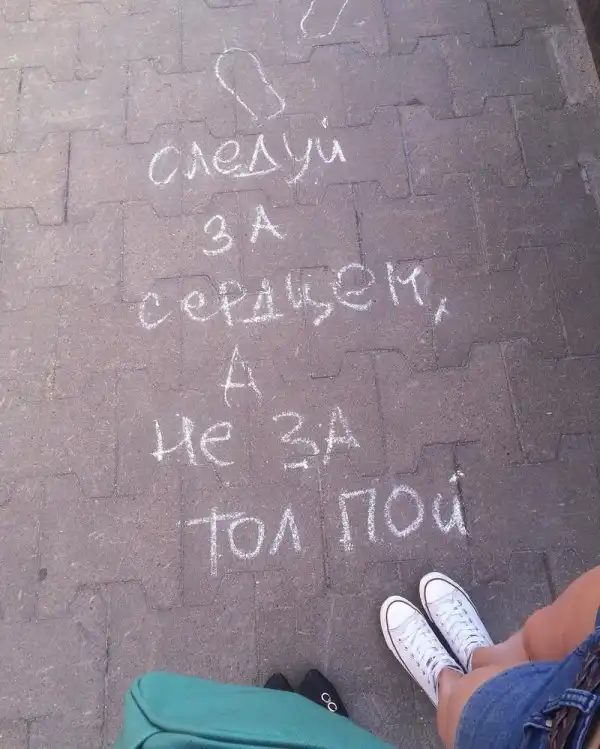 следуй
за
сердцем,
А
не за
толпой